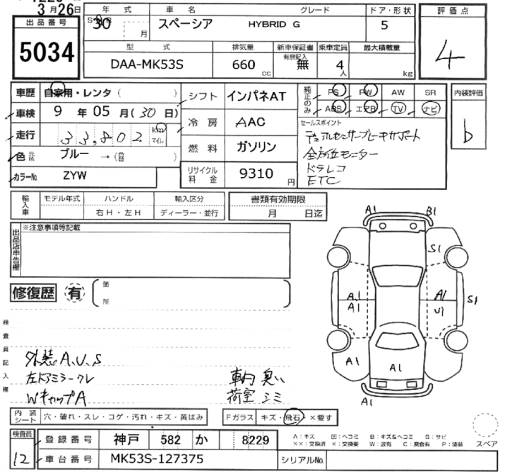 3月26日
出品番号
5034
年式
30
月
車名
スペーシア
グレード
HYBRID G
ドア・形状
5
評価点
4
型式
DAA-MK53S
排気量
660 cc
新車保証書
有効記入
無
乗車定員
4人
最大積載量
kg
車歴
自家用・レンタ( )
シフト
インパネAT
純正のみ
PS
PW
AW
SR
ABS
エアB
TV
ナビ
内装評価
b
車検
9年 05月(30日)
冷房
AAC
セールスポイント
デュアルセンサーブレーキサポート
全方位モニター
ドラレコ
ETC
走行
33,802
Km
マイル
燃料
ガソリン
色
ブルー → ( )
リサイクル料金
9310円
カラーNo
ZYW
輸入車
モデル年式
ハンドル
右H・左H
輸入区分
ディーラー・並行
書類有効期限
月 日迄
※注意事項等記載
修復歴
有
箇所
A1
B1
S1
A1
A1
A1
U1
S1
A1
A1
A1
検査員記入欄
外装A,U,S
左ドアミラークレ
WキャップA
車内臭い
荷室シミ
内装シート
穴・破れ・スレ・コゲ・汚れ・キズ・黄ばみ
Fガラス
キズ・飛石・×要す
検査員
12
登録番号
神戸 582 か 8229
車台番号
MK53S-127375
シリアルNo
A:キズ U:凹ヘコミ B:キズ&ヘコミ S:サビ
××:交換済 X:交換要 W:波有 C:腐食有 P:塗装
スペア